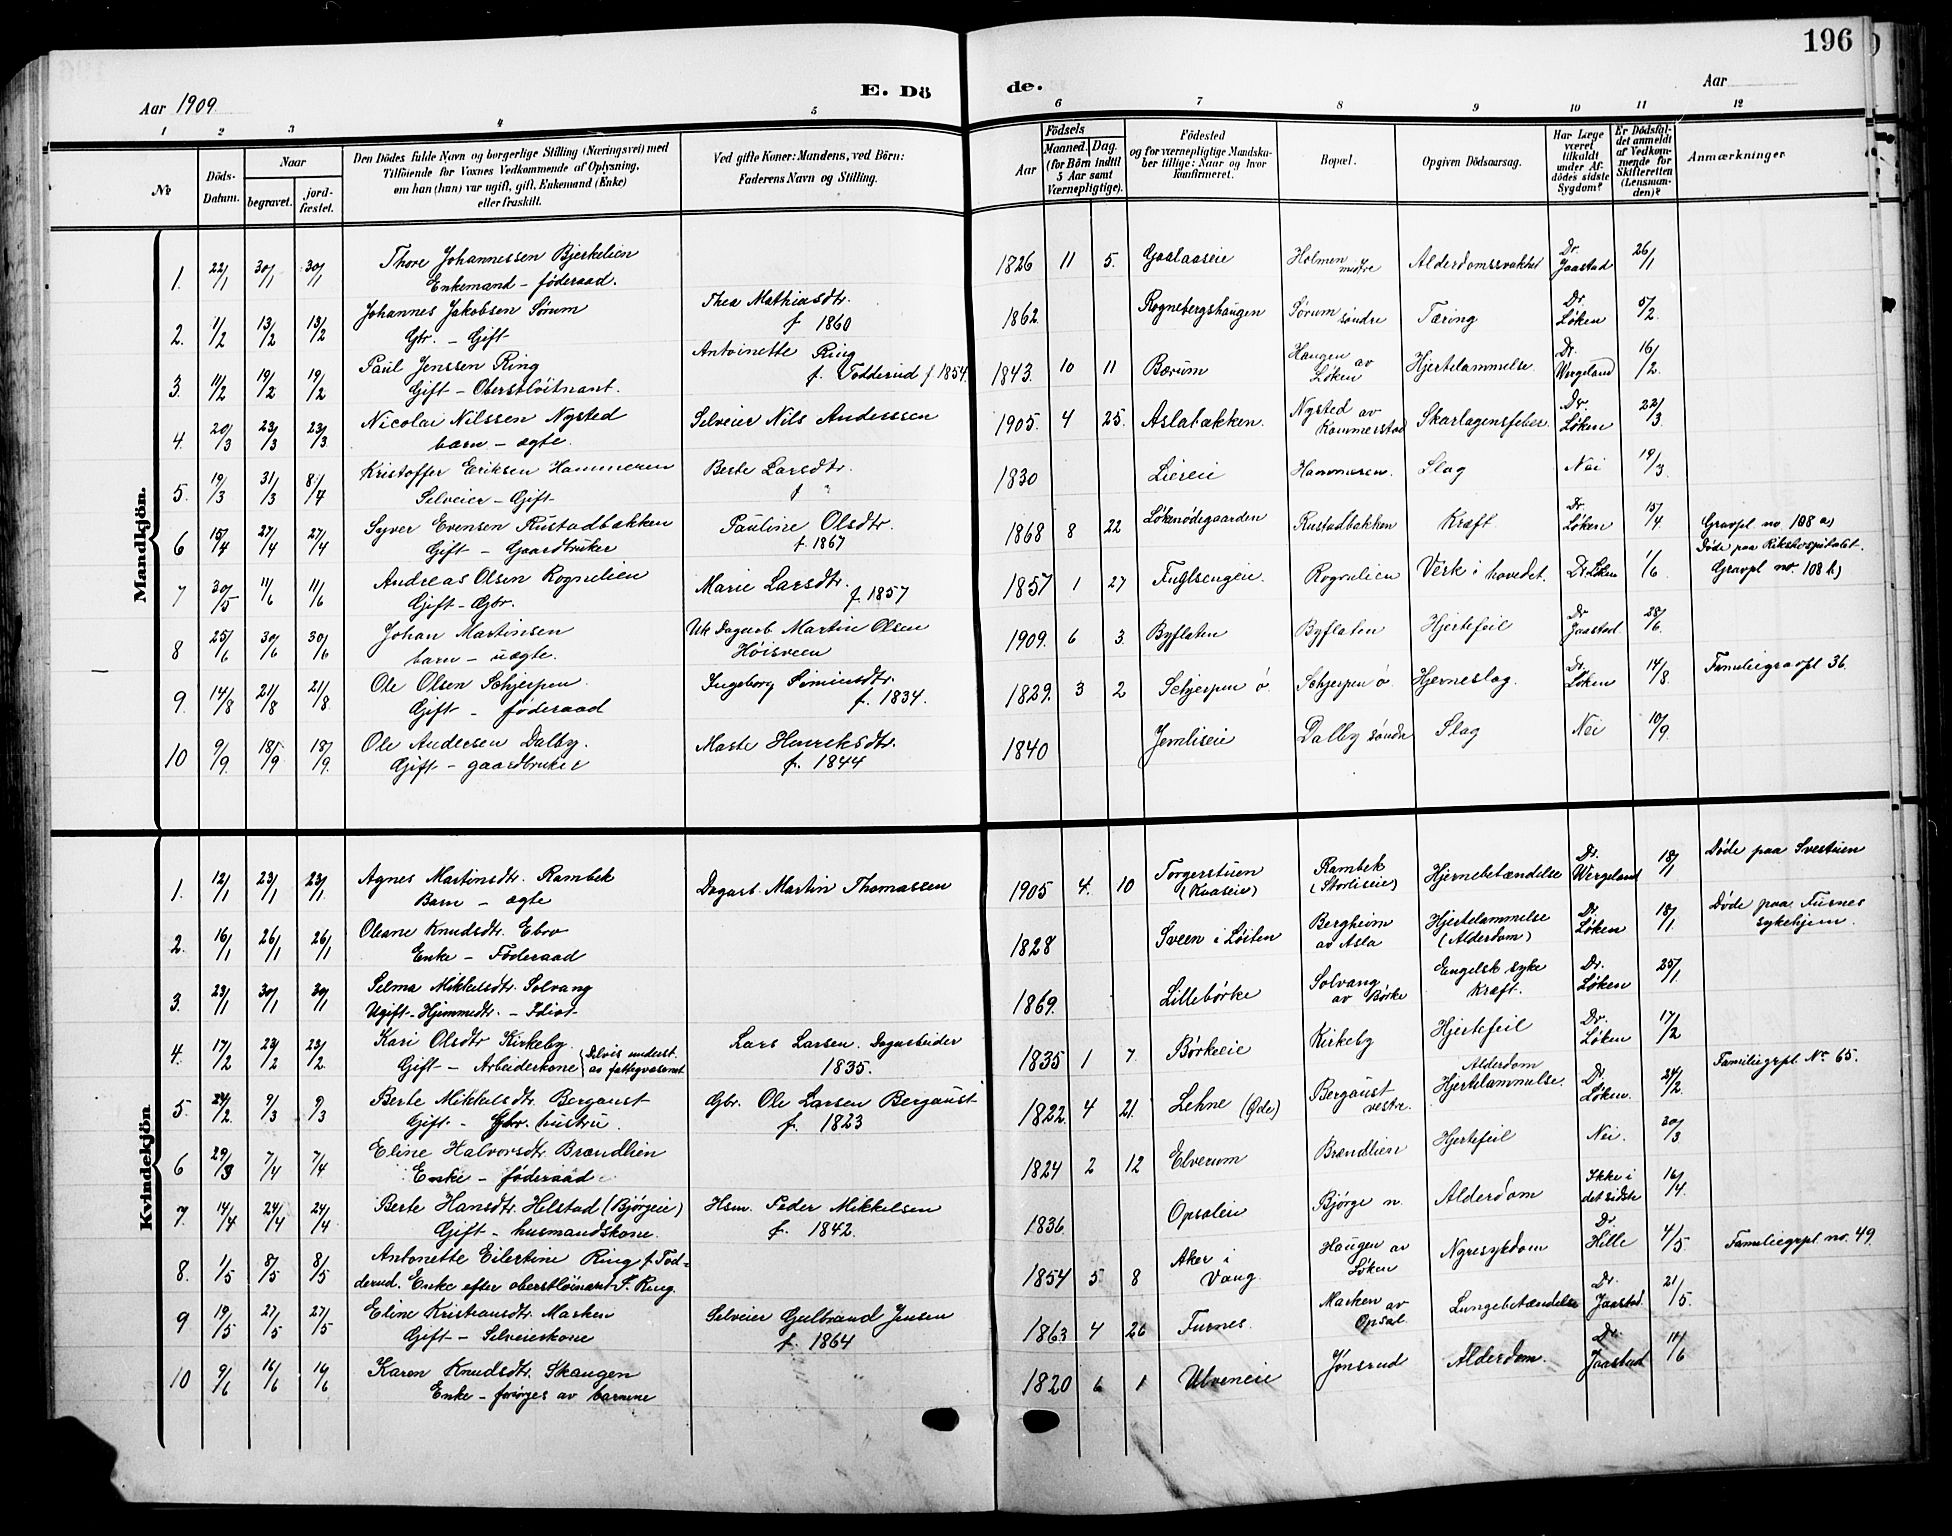 196
Aar 1909
E. Dö
de.
Aar
1 2 3 4 5 6 7 8 9 10 11 12
No
Döds-
Datum.
Naar
begravet.
jord-
fæstet.
Den Dödes fulde Navn og borgerlige Stilling (Næringsvei) med
Tilföiende for Voxnes Vedkommende af Oplysning,
om han (hun) var ugift, gift, Enkemand (Enke)
eller fraskilt.
Ved gifte Koner: Mandens, ved Börn:
Faderens Navn og Stilling.
Födsels
Aar
Maaned. Dag.
(for Börn indtil
5 Aar samt
Værnepligtige).
Födested
og for værnepligtige Mandska-
ber tillige: Naar og hvor
konfirmeret.
Bopæl.
Opgiven Dödsaarsag.
Har Læge
været
tilkaldt
under Af-
dödes sidste
Sygdom?
Er Dödsfal-
det anmeldt
af Vedkom-
mende for
Skifteretten
(Lensman-
den)?
Anmærkninger
Mandkjön.
1. 22/1 30/1 30/1 Thore Johannessen Bjerkelien 1826 11 5. Gaalaaseie Holmen nedre Alderdomssvakhet Dr. Jaastad 26/11
Enkemand - føderaad.
2. 11/2 13/2 13/2 Johannes Jakobsen Sørum Thea Mathiasdtr. 1862 Rognebergshaugen Sørum søndre Tæring Dr. Løken 5/2.
Gbr. - Gift f 1860
3. 11/2 19/2 19/2 Paul Jenssen Ring Antoinette Ring 1843. 10 11 Bærum Haugen av Løken Hjertelammelse. Dr. Wergeland 16/2.
Gift - Oberstløitnant. f. Todderud f 1854.
4. 20/3 23/3 23/3 Nicolai Nilssen Nysted Selveier Nils Anderssen 1905. 4 25. Aslabakken. Nysted av Kommerstad Skarlagensfeber. Dr. Løken 22/3.
barn - ægte.
5. 19/3 31/3 8/4 Kristoffer Eriksen Hammeren Berte Larsdtr. 1830 Liereie Hammeren. Slag Nei 19/3.
Selveier - Gift f "
6 15/4 27/4 27/4 Syver Evensen Rustadbakken Pauline Olsdtr. 1868 8 22 Løkenødegaarden Rustadbakken Kræft Dr. Løken 15/4. Gravpl no. 108 a)
Gift - Gaardbruker f. 1867 Døde paa Rikshospitalet.
7 30/5 11/6 11/6 Andreas Olsen Rognelien Marie Larsdtr. 1857 1 27 Fuglsengeie. Rognlien Verk i hovedet. Dr Løken 1/6. Gravpl no. 108 b)
Gift - Gbr. f. 1857
8 25/6 30/6 30/6 Johan Martinsen Uk Dagarb. Martin Olsen 1909. 6 3. Byflaten Byflaten Hjertefeil Dr Jaastad. 28/6.
barn - uægte. Høisveen
9. 14/8 21/8 21/8 Ole Olsen Schjerpen Ingeborg Simensdtr. 1829. 3 2 Schjerpen ø. Schjerpen ø. Hjerneslag. Dr. Løken 14/8. Familiegravpl 36.
Gift - føderaad f. 1834.
10 9/9. 18/9 18/9. Ole Andersen Dalby. Marte Henriksdtr. 1840 Jemliseie Dalby søndre Slag Nei 10/9.
Gift - gaardbruker f. 1844
Kvindekjön.
1. 12/1 23/1 23/1. Agnes Martinsdtr. Rambek Dagarb. Martin Thomassen 1905 4. 10 Torgerstuen (Kvaseie) Rambek (Storliseie) Hjernebetændelse Dr. Wergeland 18/1 Døde paa Svestuen
Barn - ægte
2. 16/1 26/1 26/1 Oleane Knudsdtr. Ebro 1828 Sveen i Løiten Bergheim av Asla Hjertelammelse (Alderdom) Dr. Løken 18/1. Døde paa Furnes sykehjem.
Enke - Føderaad
3. 23/1 30/1 30/1 Selma Mikkelsdtr. Solvang 1869. Lillebørke Solvang av Børke Engelsk syke Kræft. Dr. Løken 25/1
Ugift - Hjemmedtr. - Idiot
4. 17/2 23/2 23/2. Kari Olsdtr Kirkeby. Lars Larsen. Dagarbeider 1835 1 7. Børkeeie Kirkeby Hjertefeil Dr. Løken 17/2
Gift - Arbeiderkone (Delvis underst. av fattigvæsenet 1835.
5 24/2 9/3 9/3 Berte Mikkelsdtr. Bergaust Gbr. Ole Larsen Bergaust 1822. 4 21. Lehne (Øde) Bergaust vestre. Alderdom Hjertelammelse. Dr. Løken. 24/2. Familiegrpl No 65.
Gift. - Gbr. hustru. f. 1823
6 29/3 7/4 7/4 Eline Halvorsdtr. Brændlien 1824 2 12 Elverum Brændlien Hjertefeil Nei. 30/3
Enke - føderaad
7. 14/4 24/4 24/4 Berte Hansdtr. Helstad (Bjørgeie) Hsm. Peder Mikkelsen 1836. Opsaleie Bjørge n. Alderdom Ikke i det sidste 16/4.
Gift - husmandskone. f. 1842.
8. 1/5 8/5 8/5 Antonette Eilertine Ring f. Tod- 1854 5 8 Aker i Vang. Haugen av Løken Nyresykdom Dr. Hille 4/5 Familiegrpl no. 49.
derud. Enke efter oberstløitnant P. Ring.
9 19/5 27/5 27/5 Eline Kristiansdtr. Marken Selveier Gulbrand Jensen 1863 4 26 Furnes. Marken av Opsal Lungebetændelse Dr. Jaastad. 21/5.
Gift - Selveierkone f. 1864
10 9/6 16/6 16/6 Karen Knudsdtr. Skaugen 1820 6 1 Ulveneie Jønsrud Alderdom. Dr. Jaastad 11/6
Enke - forsørges av barnene